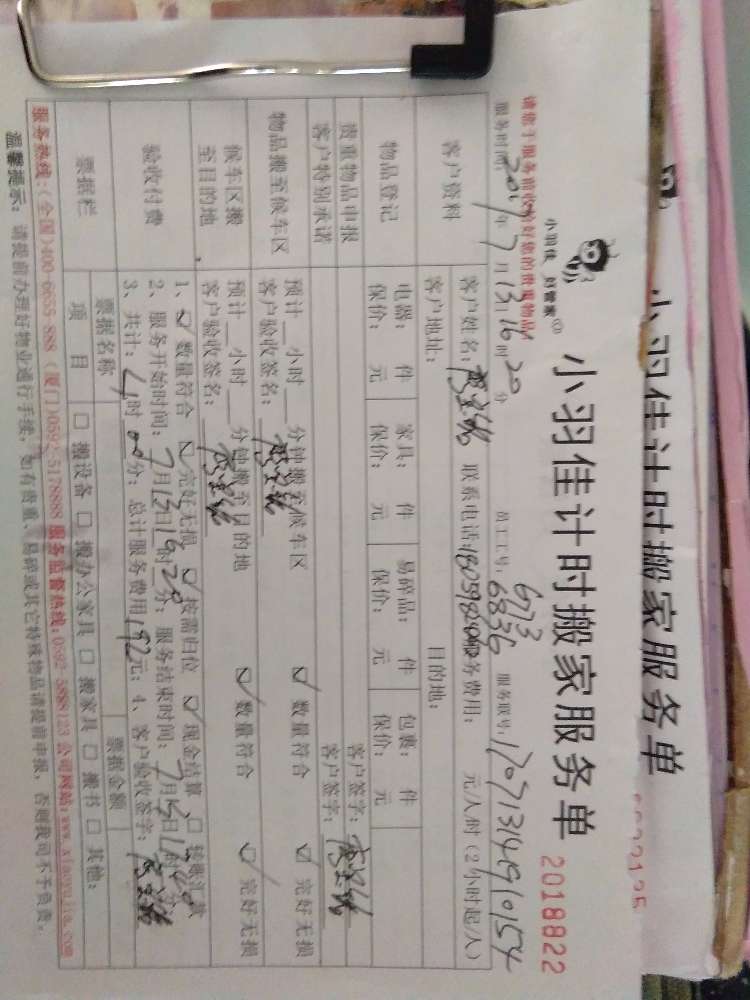 小羽佳计时搬家服务单
小羽佳 好管家
小羽佳计时搬家服务单 2018822
请您于服务前收好您的贵重物品
服务时间: 2017年7月13日16时20分 员工工号: 6713 6836 服务账号: 17071314910154
客户资料 客户姓名: 联系电话: 服务费用: 元/人/时(2小时起/人)
客户地址: 目的地:
物品登记 电器: 件 家具: 件 易碎品: 件 包裹: 件
保价: 元 保价: 元 保价: 元 保价: 元
贵重物品申报 客户签字:
客户特别承诺 客户签字:
物品搬至候车区 预计__小时__分钟搬至候车区 数量符合 完好无损
客户验收签名:
候车区搬至目的地 预计__小时__分钟搬至目的地 数量符合 完好无损
客户验收签名:
验收付费 1、 数量符合 完好无损 按需归位 现金结算 转账汇款
2、服务开始时间: 7月13日16时20分; 服务结束时间: 7月13日
3、共计: 4时00分; 总计服务费用192元; 4、客户验收签字:
票据栏 票据名称 票据金额
项目 搬设备 搬办公家具 搬家具 搬书 其他:
服务热线:(全国)400 6655 888 (厦门)0592-5178888 服务监督热线:0592 5888123 公司网站:www.xiaoyujia.com
温馨提示: 请提前办理好物业通行手续, 如有贵重、易碎或其它特殊物品请提前申报, 否则我司不予负责。